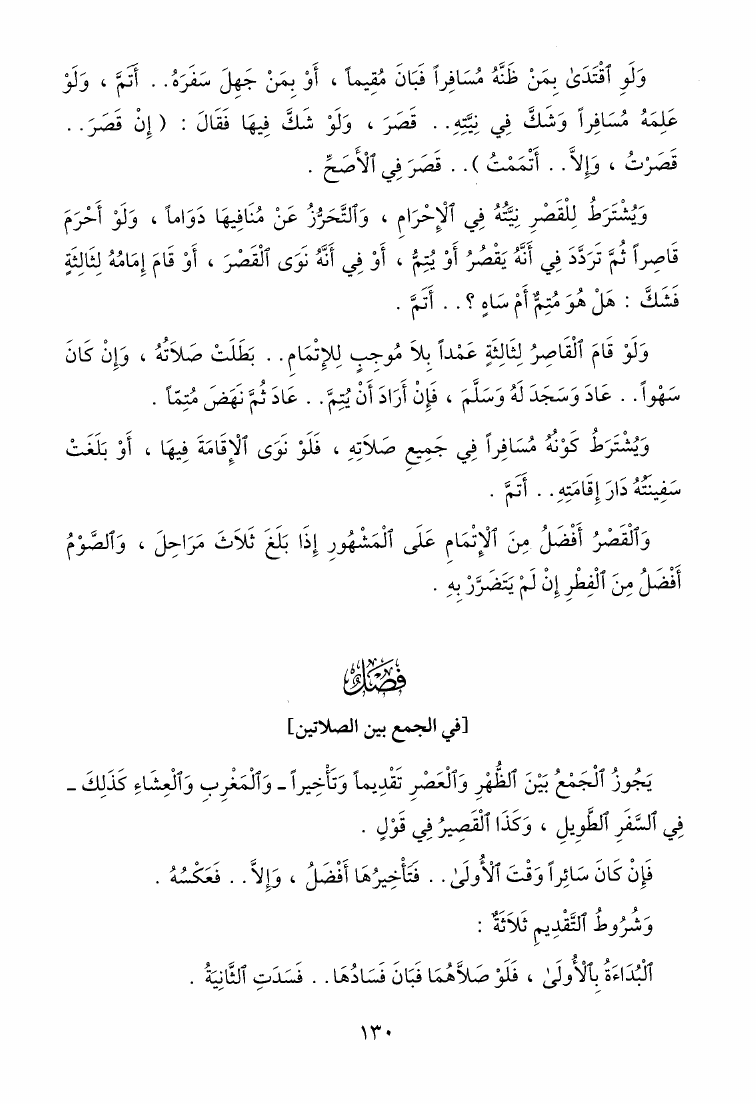 وَلَوِ ٱقْتَدَىٰ بِمَنْ ظَنَّهُ مُسَافِراً فَبَانَ مُقِيماً ، أَوْ بِمَنْ جَهِلَ سَفَرَهُ . . أَتَمَّ ، وَلَوْ
عَلِمَهُ مُسَافِراً وَشَكَّ فِي نِيَّتِهِ . . قَصَرَ ، وَلَوْ شَكَّ فِيهَا فَقَالَ : ( إِنْ قَصَرَ . .
قَصَرْتُ ، وَإِلاَّ . . أَتْمَمْتُ ) . . قَصَرَ فِي ٱلأَصَحِّ .
وَيُشْتَرَطُ لِلْقَصْرِ نِيَّتُهُ فِي ٱلإِحْرَامِ ، وَٱلتَّحَرُّزُ عَنْ مُنَافِيهَا دَوَاماً ، وَلَوْ أَحْرَمَ
قَاصِراً ثُمَّ تَرَدَّدَ فِي أَنَّهُ يَقْصُرُ أَوْ يُتِمُّ ، أَوْ فِي أَنَّهُ نَوَى ٱلْقَصْرَ ، أَوْ قَامَ إِمَامُهُ لِثَالِثَةٍ
فَشَكَّ : هَلْ هُوَ مُتِمٌّ أَمْ سَاهٍ ؟ . . أَتَمَّ .
وَلَوْ قَامَ ٱلْقَاصِرُ لِثَالِثَةٍ عَمْداً بِلاَ مُوجِبٍ لِلإِتْمَامِ . . بَطَلَتْ صَلاَتُهُ ، وَإِنْ كَانَ
سَهْواً . . عَادَ وَسَجَدَ لَهُ وَسَلَّمَ ، فَإِنْ أَرَادَ أَنْ يُتِمَّ . . عَادَ ثُمَّ نَهَضَ مُتِمّاً .
وَيُشْتَرَطُ كَوْنُهُ مُسَافِراً فِي جَمِيعِ صَلاَتِهِ ، فَلَوْ نَوَى ٱلإِقَامَةَ فِيهَا ، أَوْ بَلَغَتْ
سَفِينَتُهُ دَارَ إِقَامَتِهِ . . أَتَمَّ .
وَٱلْقَصْرُ أَفْضَلُ مِنَ ٱلإِتْمَامِ عَلَى ٱلْمَشْهُورِ إِذَا بَلَغَ ثَلاَثَ مَرَاحِلَ ، وَٱلصَّوْمُ
أَفْضَلُ مِنَ ٱلْفِطْرِ إِنْ لَمْ يَتَضَرَّرْ بِهِ .
فَصْلٌ
[في الجمع بين الصلاتين]
يَجُوزُ ٱلْجَمْعُ بَيْنَ ٱلظُّهْرِ وَٱلْعَصْرِ تَقْدِيماً وَتَأْخِيراً ـ وَٱلْمَغْرِبِ وَٱلْعِشَاءِ كَذَلِكَ ـ
فِي ٱلسَّفَرِ ٱلطَّوِيلِ ، وَكَذَا ٱلْقَصِيرُ فِي قَوْلٍ .
فَإِنْ كَانَ سَائِراً وَقْتَ ٱلأُولَىٰ . . فَتَأْخِيرُهَا أَفْضَلُ ، وَإِلاَّ . . فَعَكْسُهُ .
وَشُرُوطُ ٱلتَّقْدِيمِ ثَلاَثَةٌ :
ٱلْبُدَاءَةُ بِٱلأُولَىٰ ، فَلَوْ صَلاَّهُمَا فَبَانَ فَسَادُهَا . . فَسَدَتِ ٱلثَّانِيَةُ .
١٣٠